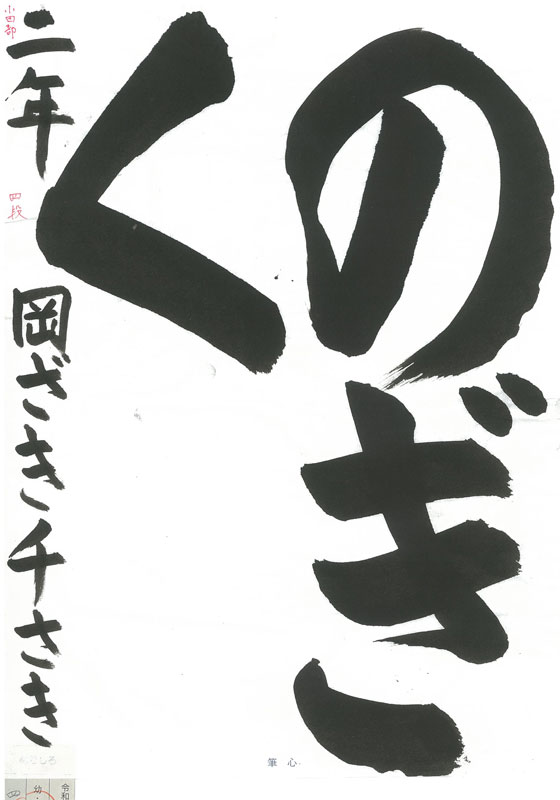 のぎ
く
小四部
二年
四段
岡ざき千さき
筆心
令和
幼・
四